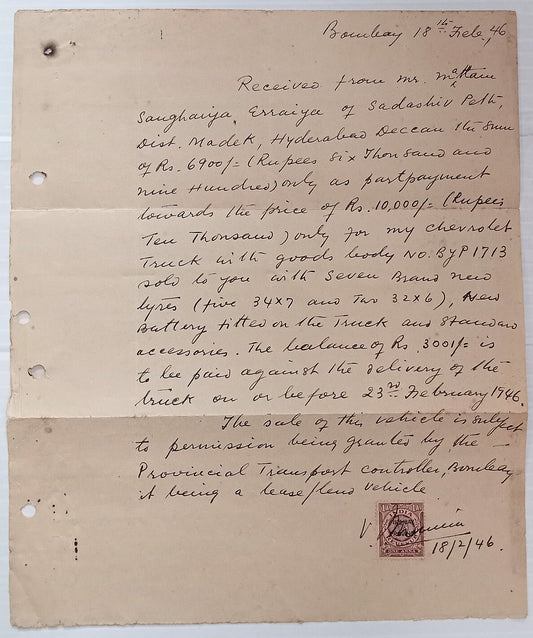 Bombay 18th Feb., 46
Received from Mr. Mattam
Sanghaiya Erraiya of Sadashiv Peth,
Dist. Madek, Hyderabad Deccan the sum
of Rs. 6900/= (Rupees six Thousand and
nine Hundred) only as part payment
towards the price of Rs. 10,000/= (Rupees
Ten Thousand) only for my chevrolet
Truck with goods body No. ByP 1713
sold to you with Seven Brand new
tyres (five 34x7 and Two 32x6), New
Battery fitted on the Truck and standard
accessories. The balance of Rs. 3001/= is
to be paid against the delivery of the
truck on or before 23rd February 1946.
The sale of this vehicle is subject
to permission being granted by the —
Provincial Transport controller, Bombay
it being a lease/lend vehicle
V.
18/2/46.
INDIA
ONE ANNA